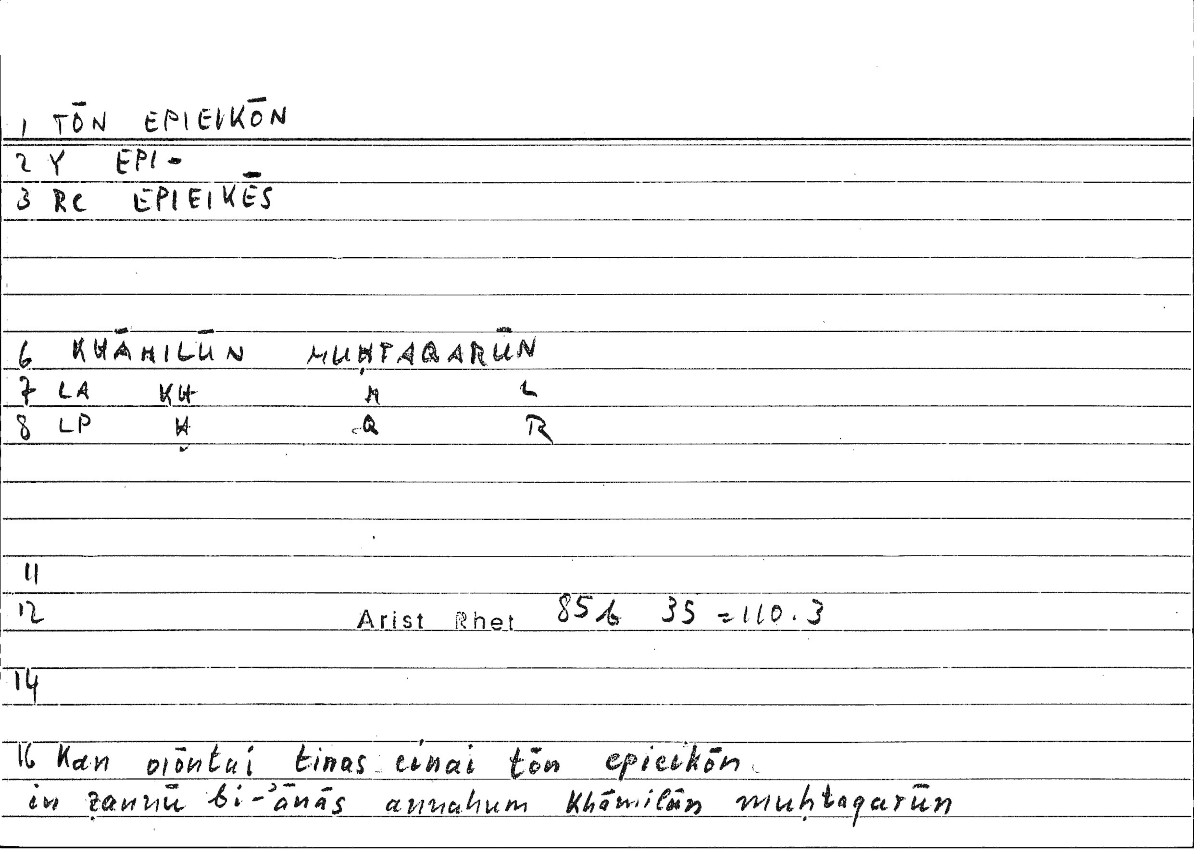 1 TŌN EPIEIKŌN
2 Y EPI-
3 RC EPIEIKĒS
6 KHĀMILŪN MUḤTAQARŪN
7 LA KH M L
8 LP Ḥ Q R
11
12 Arist Rhet 85b 35 = 110.3
14
16 Kan oiōntai tinas einai tōn epieikōn
in ẓannū bi-ʾānās annahum khāmilūn muḥtaqarūn